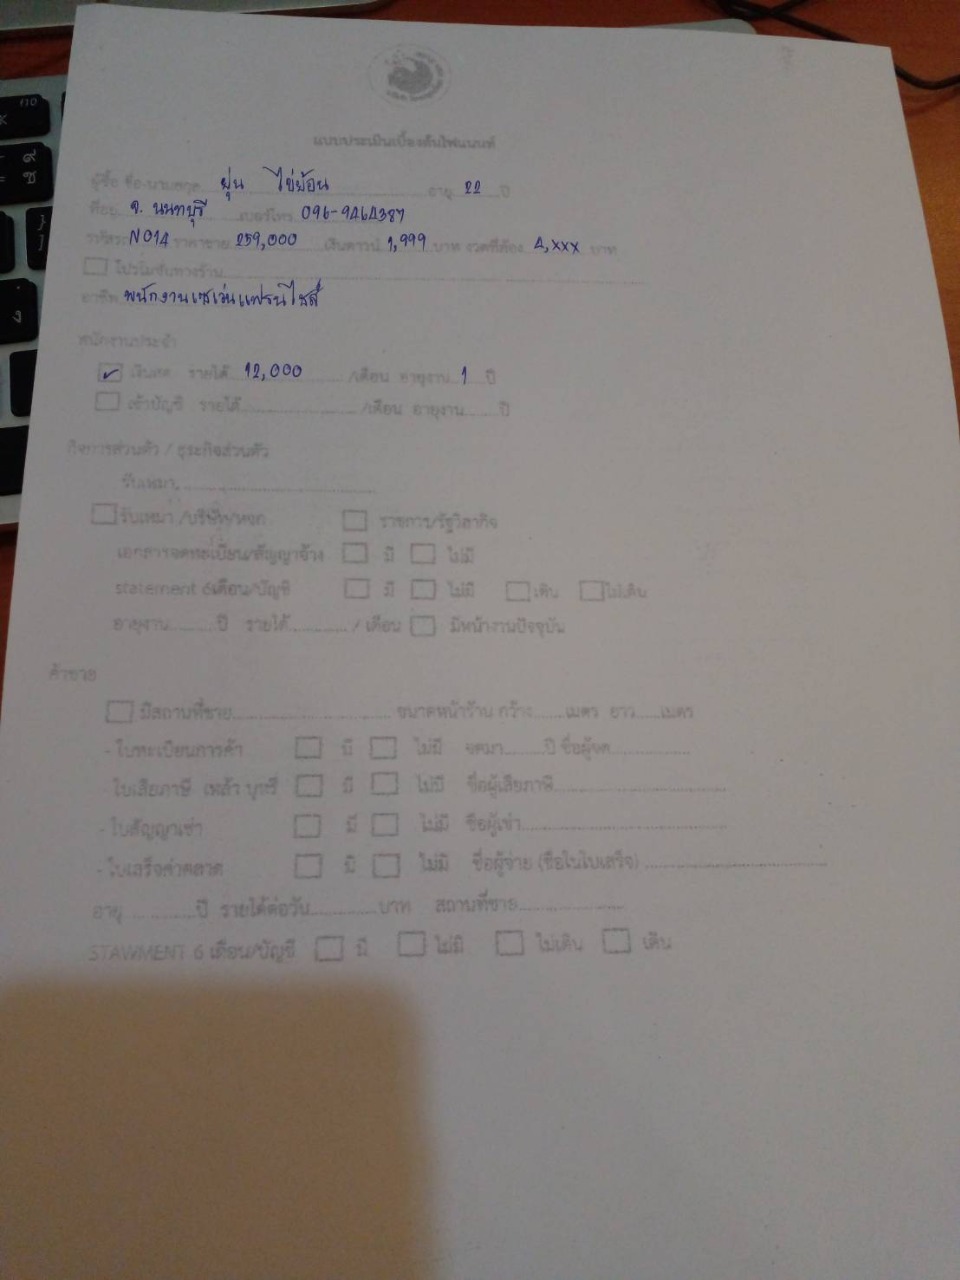 แบบประเมินเบื้องต้นไฟแนนท์
ผู้ซื้อ ชื่อ-นามสกุล ฝุ่น ไข่ย้อน อายุ 22 ปี
ที่อยู่ จ. นนทบุรี เบอร์โทร 096-9464387
รหัสรถ N014 ราคาขาย 259,000 เงินดาวน์ 1,999 บาท งวดที่ต้อง 4,xxx บาท
โปรโมชั่นทางร้าน
อาชีพ พนักงานเซเว่นแฟรนไชส์
พนักงานประจำ
เงินสด รายได้ 12,000 /เดือน อายุงาน 1 ปี
เข้าบัญชี รายได้ /เดือน อายุงาน ปี
กิจการส่วนตัว / ธุระกิจส่วนตัว
รับเหมา
รับเหมา /บริษัท/หจก ราชการ/รัฐวิสากิจ
เอกสารจดทะเบียน/สัญญาจ้าง มี ไม่มี
statement 6เดือน/บัญชี มี ไม่มี เดิน ไม่เดิน
อายุงาน ปี รายได้ / เดือน มีหน้างานปัจจุบัน
ค้าขาย
มีสถานที่ขาย ขนาดหน้าร้าน กว้าง เมตร ยาว เมตร
- ใบทะเบียนการค้า มี ไม่มี จดมา ปี ชื่อผู้จด
ใบเสียภาษี เหล้า บุหรี่ มี ไม่มี ชื่อผู้เสียภาษี
- ใบสัญญาเช่า มี ไม่มี ชื่อผู้เช่า
- ใบเสร็จค่าตลาด มี ไม่มี ชื่อผู้จ่าย (ชื่อในใบเสร็จ)
อายุ ปี รายได้ต่อวัน บาท สถานที่ขาย
STAWMENT 6 เดือน/บัญชี มี ไม่มี ไม่เดิน เดิน